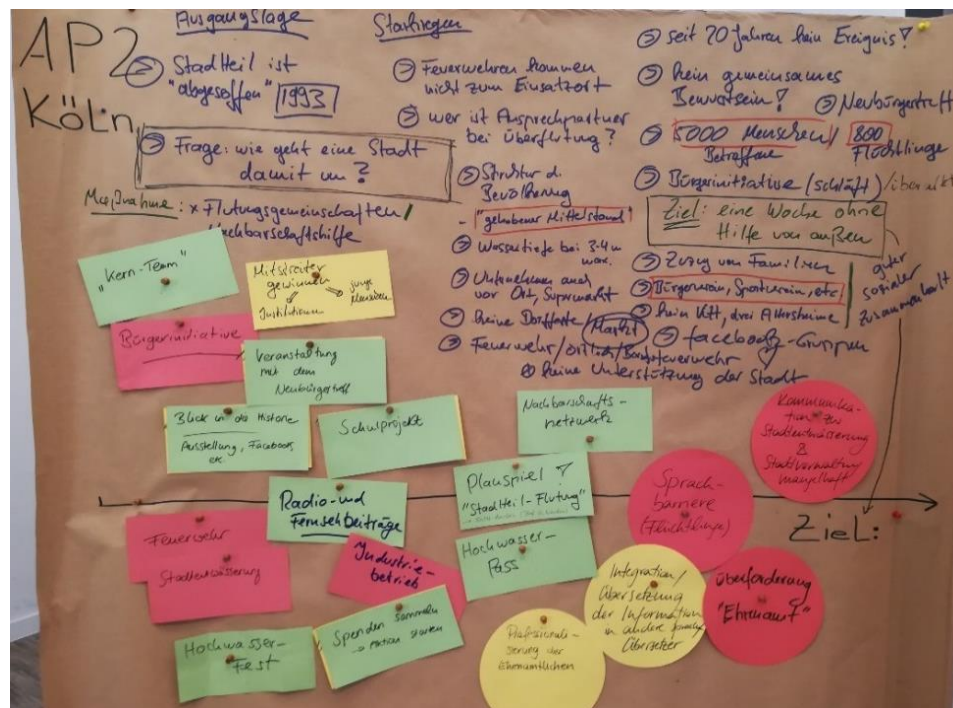 AP2
Köln
Ausgangslage
→ Stadtteil ist
"abgesoffen" 1993
→ Frage: wie geht eine Stadt
damit um?
Maßnahme: x Flutungsgemeinschaften /
Nachbarschaftshilfe
Starkregen
→ Feuerwehren kommen
nicht zum Einsatzort
→ wer ist Ansprechpartner
bei Überflutung?
→ Struktur d.
Bevölkerung
- "gehobener Mittelstand"
→ Wassertiefe bei 3-4 m
max.
→ Unternehmen auch
vor Ort, Supermarkt
→ keine Dorffeste / Markt
→ Feuerwehr / örtlich / Berufsfeuerwehr
→ keine Unterstützung der Stadt
→ seit 20 Jahren kein Ereignis!
→ kein gemeinsames
Bewusstsein!
→ Neubürgertreff
→ 5000 Menschen / 800
Betroffene Flüchtlinge
→ Bürgerinitiative (schläft) /
Ziel: eine Woche ohne
Hilfe von außen
→ Zuzug von Familien
→ Bürgerverein, Sportverein, etc.
→ kein KH, drei Altersheime
→ facebook-Gruppen
guter
sozialer
Zusammenhalt
"Kern-Team"
Mitstreiter
gewinnen
Institutionen
junge
Bürgerinitiative
Veranstaltung
mit dem
Neubürgertreff
Blick in die Historie
Ausstellung, Facebook,
etc.
Schulprojekt
Nachbarschafts-
netzwerk
Kommunika-
tion zu
Stadtentwässerung
&
Stadtverwaltung
mangelhaft
Radio- und
Fernsehbeiträge
Planspiel!
"Stadtteil-Flutung"
Sprach-
barriere
(Flüchtlinge)
Ziel:
Feuerwehr
Stadtentwässerung
Industrie-
betrieb
Hochwasser-
Pass
Integration /
Übersetzung
der Information
in andere
Übersetzer
Überforderung
"Ehrenamt"
Hochwasser-
Fest
Spenden sammeln
→ Aktion starten
Professionali-
sierung der
Ehrenamtlichen